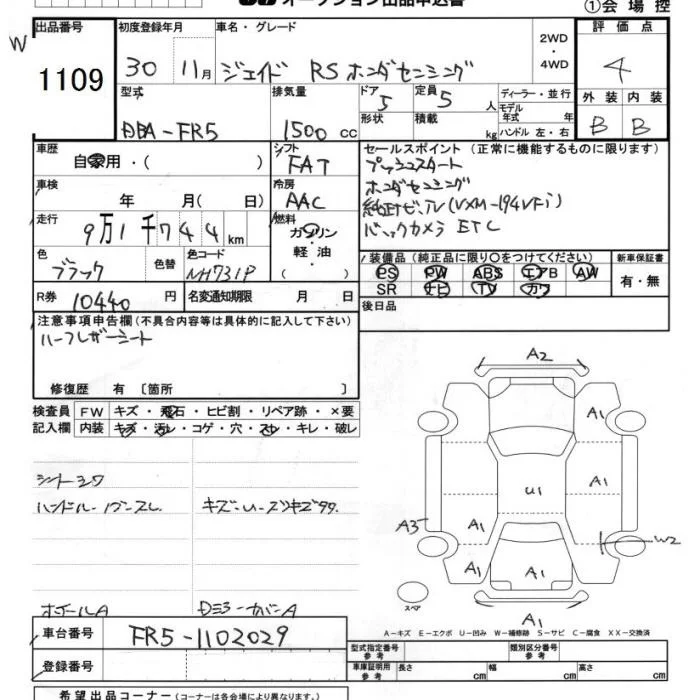 オークション出品申込書
①会場控
W
出品番号 初度登録年月 車名・グレード 2WD・4WD 評価点
1109 30 11月 ジェイド RSホンダセンシング 4
型式 排気量 ドア 5 定員 5人 ディーラー・並行 外装 内装
DBA-FR5 1500cc 形状 積載 kg モデル年式 年 ハンドル 左・右 B B
車歴 シフト セールスポイント(正常に機能するものに限ります)
自家用・( ) FAT プッシュスタート
車検 冷房 ホンダセンシング
年 月(日) AAC 純正ナビ、TV(VXM-194VFi)
走行 9万1千744km 燃料 バックカメラ ETC
ガソリン・軽油
色 色替 色コード 装備品(純正品に限り〇をつけてください) 新車保証書
ブラック NH731P PS PW ABS エアB AW 有・無
SR ナビ TV カワ
R券 10440円 名変通知期限 月 日 後日品
注意事項申告欄(不具合内容等は具体的に記入して下さい)
ハーフレザーシート
修復歴 有 〔箇所 〕
検査員 FW キズ・飛石・ヒビ割・リペア跡・×要
記入欄 内装 キズ・汚レ・コゲ・穴・スレ・キレ・破レ
シートシワ
ハンドル
キズ・U
ホイールA
A2
A1
A1
U1
A3 A1 W2
A1 A1
スペア
A1
A-キズ E-エクボ U-凹み W-補修跡 S-サビ C-腐食 XX-交換済
車台番号 FR5-1102029
登録番号
型式指定番号 参考 類別区分番号 参考
車庫証明用 参考 長さ cm 幅 cm 高さ cm
希望出品コーナー(コーナーは各会場により異なります。)